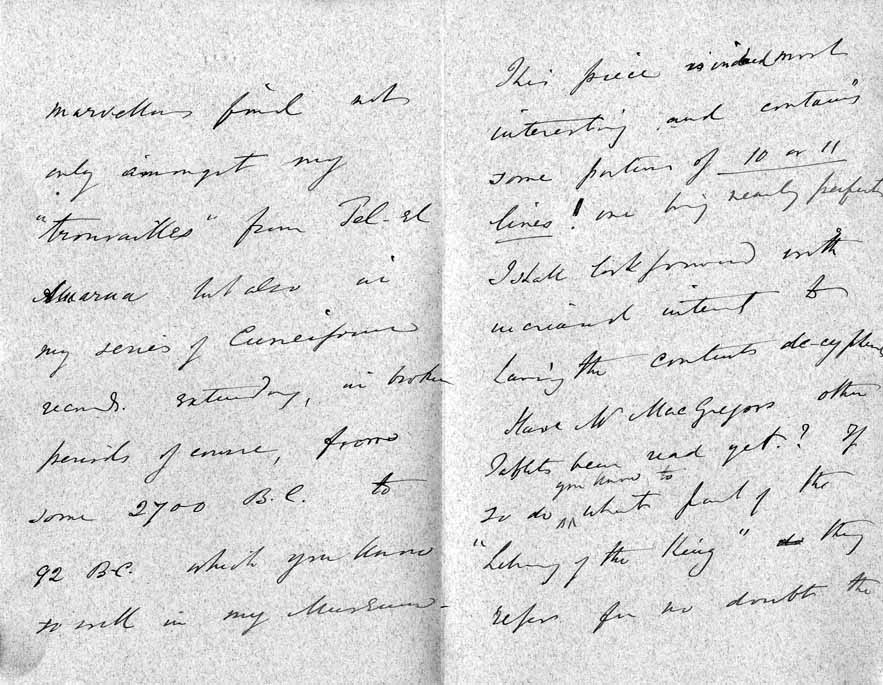 marvellous find not
only amongst my
"trouvailles" from Tel-el
Amarna but also in
my series of Cuneiform
records. extending, in broken
periods of course, from
some 2700 B.C. to
92 B.C. which you know
so well in my Museum -
This piece is indeed most
interesting and contains
some portions of 10 or 11
lines! one being nearly perfect
I shall look forward with
increased interest to
having the contents de-cyphered
Have Mr MacGregors other
Tablets been read yet? If
you know to
so do what part of the
"Library of the King" they
refer for no doubt the